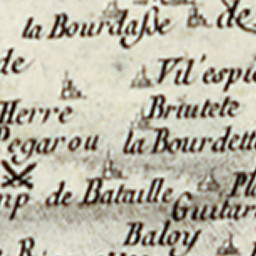 la Bourdasse de
de
Vil'espie
Herre
Briutete
Pegarou
la Bourdette
mp de Bataille
Pl
Guitar
Baloy